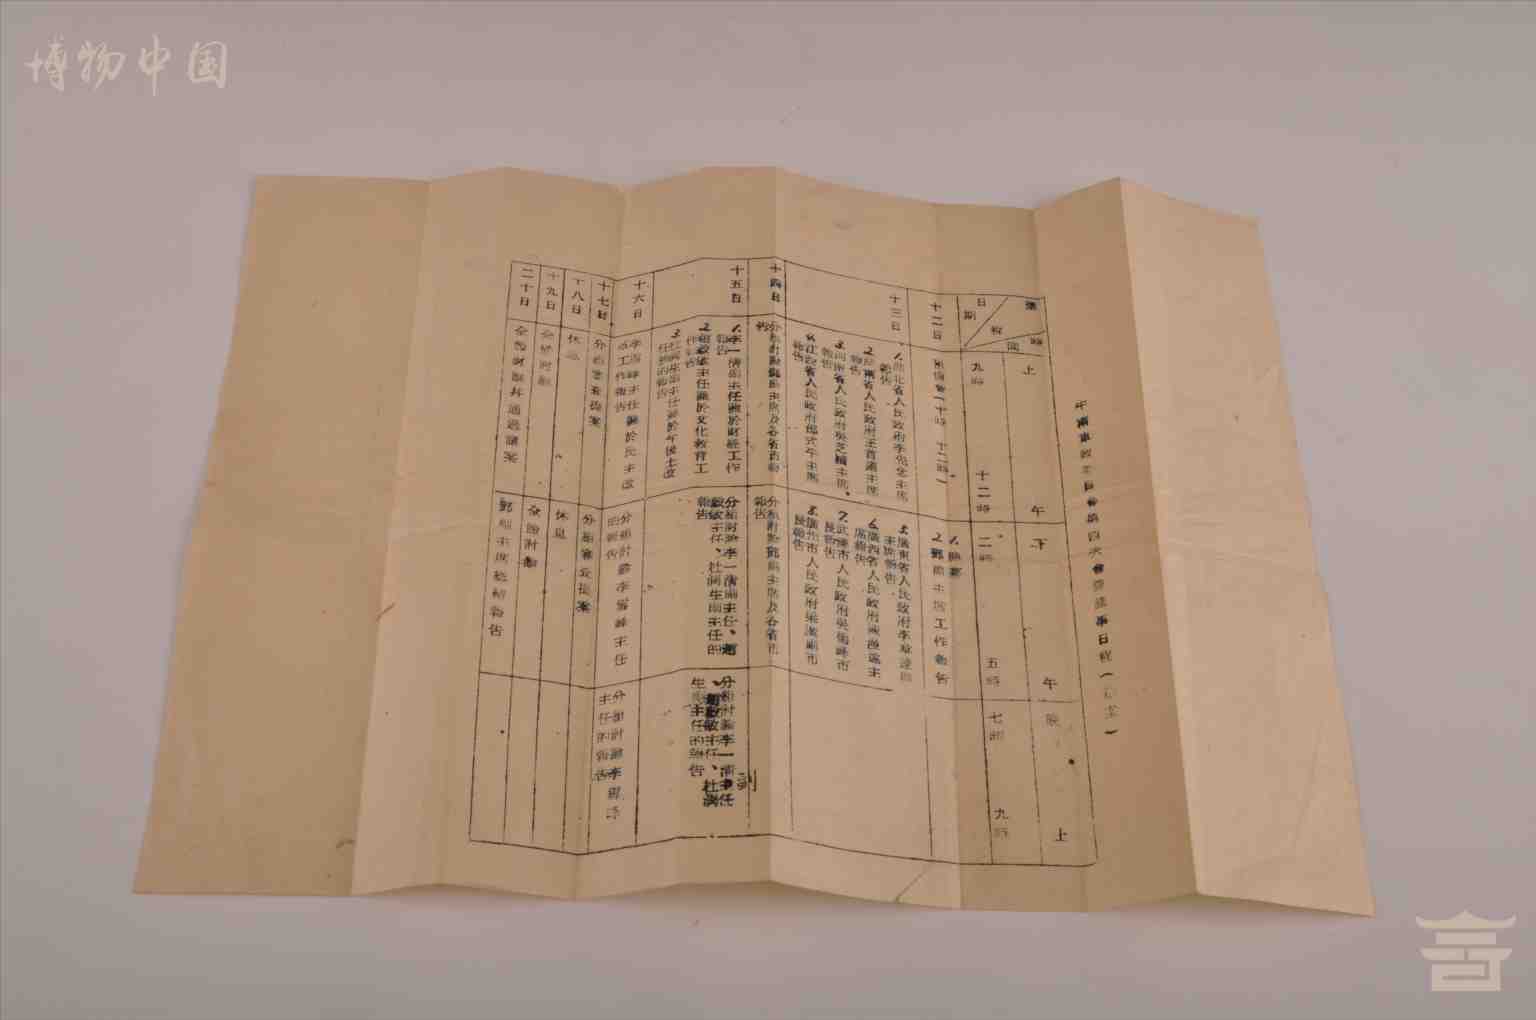 博物中国
中南軍政委員會第四次會議議事日程(草案)
議程 時間 日期
上午
九時 十二時
下午
二時 五時
晚上
七時 九時
十二日
預備會(十時 十二時)
2.鄧副主席工作報告
十三日
1.湖北省人民政府李先念主席報告
2.湖南省人民政府王首道主席報告
3.河南省人民政府吳芝圃主席報告
4.江西省人民政府邵式平主席報告
5.廣東省人民政府李章達副主席報告
6.廣西省人民政府 主席報告
7.武漢市人民政府吳德峰市長報告
8.廣州市人民政府 副市長報告
十四日
分組討論鄧副主席及各省市報告
分組討論鄧副主席及各省市報告
十五日
1.李一清副主任關於財經工作報告
2.趙毅敏主任關於文化教育工作報告
3.杜潤生副主任關於今後土改任務的報告
分組討論李一清副主任、趙毅敏主任、杜潤生副主任的報告
分組討論李一清副主任、趙毅敏主任、杜潤生副主任的報告
十六日
李雪峰主任關於民主 工作報告
分組討論李雪峰主任的報告
分組討論李雪峰主任的報告
十七日
分組審查提案
分組審查提案
十八日
休息
休息
十九日
全體討論
全體討論
二十日
全體討論并通過議案
鄧副主席總結報告